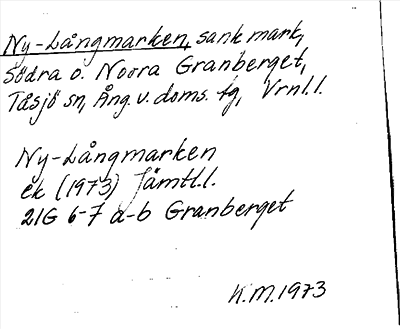 Ny-Långmarken, sank mark,
Södra o. Norra Granberget,
Tåsjö sn, Ång. v. doms. tg, Vrnl.l.
Ny-Långmarken
ek (1973) Jämtl.l.
21G 6-7 a-b Granberget
K.M. 1973